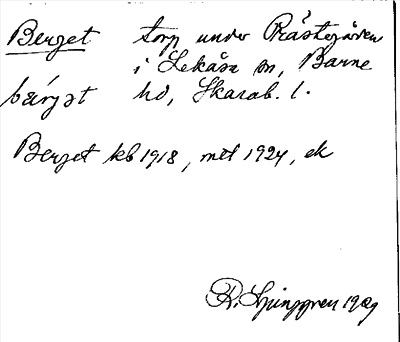 Berget torp under Prästegården
i Lekåsa sn, Barne
bærjət hd, Skarab. l.
Berget kb 1918, mtl 1924, ek
R. Ljunggren 1929